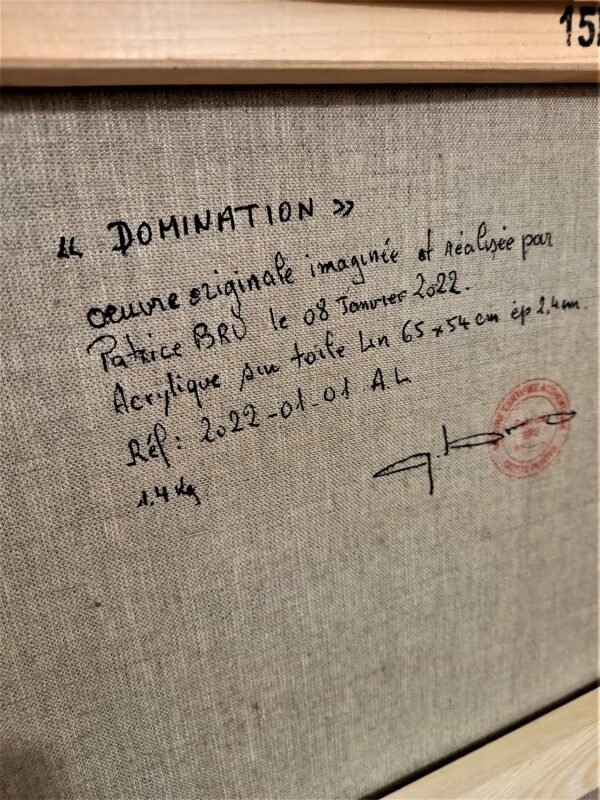 15
« DOMINATION »
œuvre originale imaginée et réalisée par
Patrice BRU le 08 Janvier 2022.
Acrylique sur toile Lin 65 x 54 cm ép 2,4 cm.
Réf : 2022-01-01 A.L
1.4 Kg